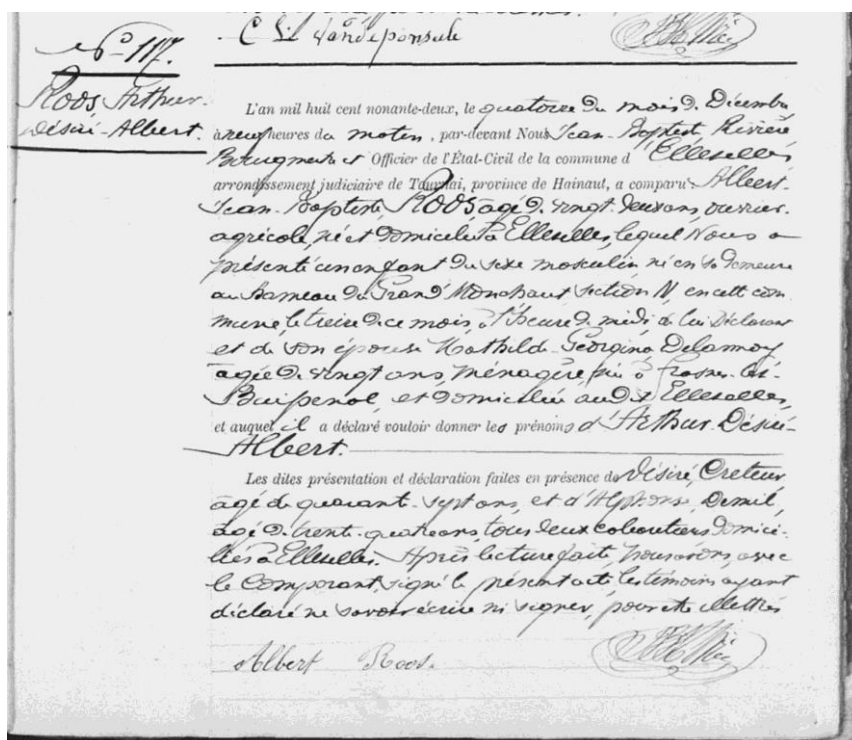 C L Vandeponsele
N° 117.
Roos Arthur-
Désiré-Albert.
L'an mil huit cent nonante-deux, le quatorze du mois de Décembre
à neuf heures du matin, par-devant Nous Jean-Baptiste Rivière
Bourgmestre et Officier de l'État-Civil de la commune d'Ellezelles
arrondissement judiciaire de Tournai, province de Hainaut, a comparu Albert-
Jean-Baptiste Roos âgé de vingt-deux ans, ouvrier
agricole, né et domicilié à Ellezelles, lequel Nous a
présenté un enfant du sexe masculin, né en sa demeure
au hameau du Grand Monchaut section N, en cette com
mune, le treize de ce mois, à l'heure de midi, de lui Déclarant
et de son épouse Mathilde-Georgina Delannoy
âgée de vingt ans, ménagère, née à Frasnes-lez-
Buissenal, et domiciliée au dit Ellezelles,
et auquel il a déclaré vouloir donner les prénoms d'Arthur-Désiré-
Albert.
Les dites présentation et déclaration faites en présence de Désiré Creteur
âgé de quarante-sept ans, et d'Alphonse Demil,
âgé de trente-quatre ans, tous deux cabaretiers domici-
liés à Ellezelles. Après lecture faite, Nous avons, avec
le Comparant, signé le présent acte, les témoins ayant
déclaré ne savoir écrire ni signer, pour être illettrés
Albert Roos.